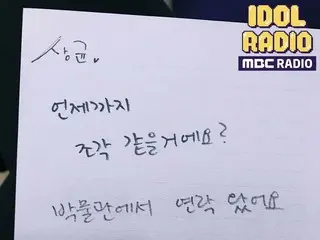 IDOL
RADIO
MBC RADIO
상균.
언제까지
조각 같을거에요?
박물관에서 연락 왔어요